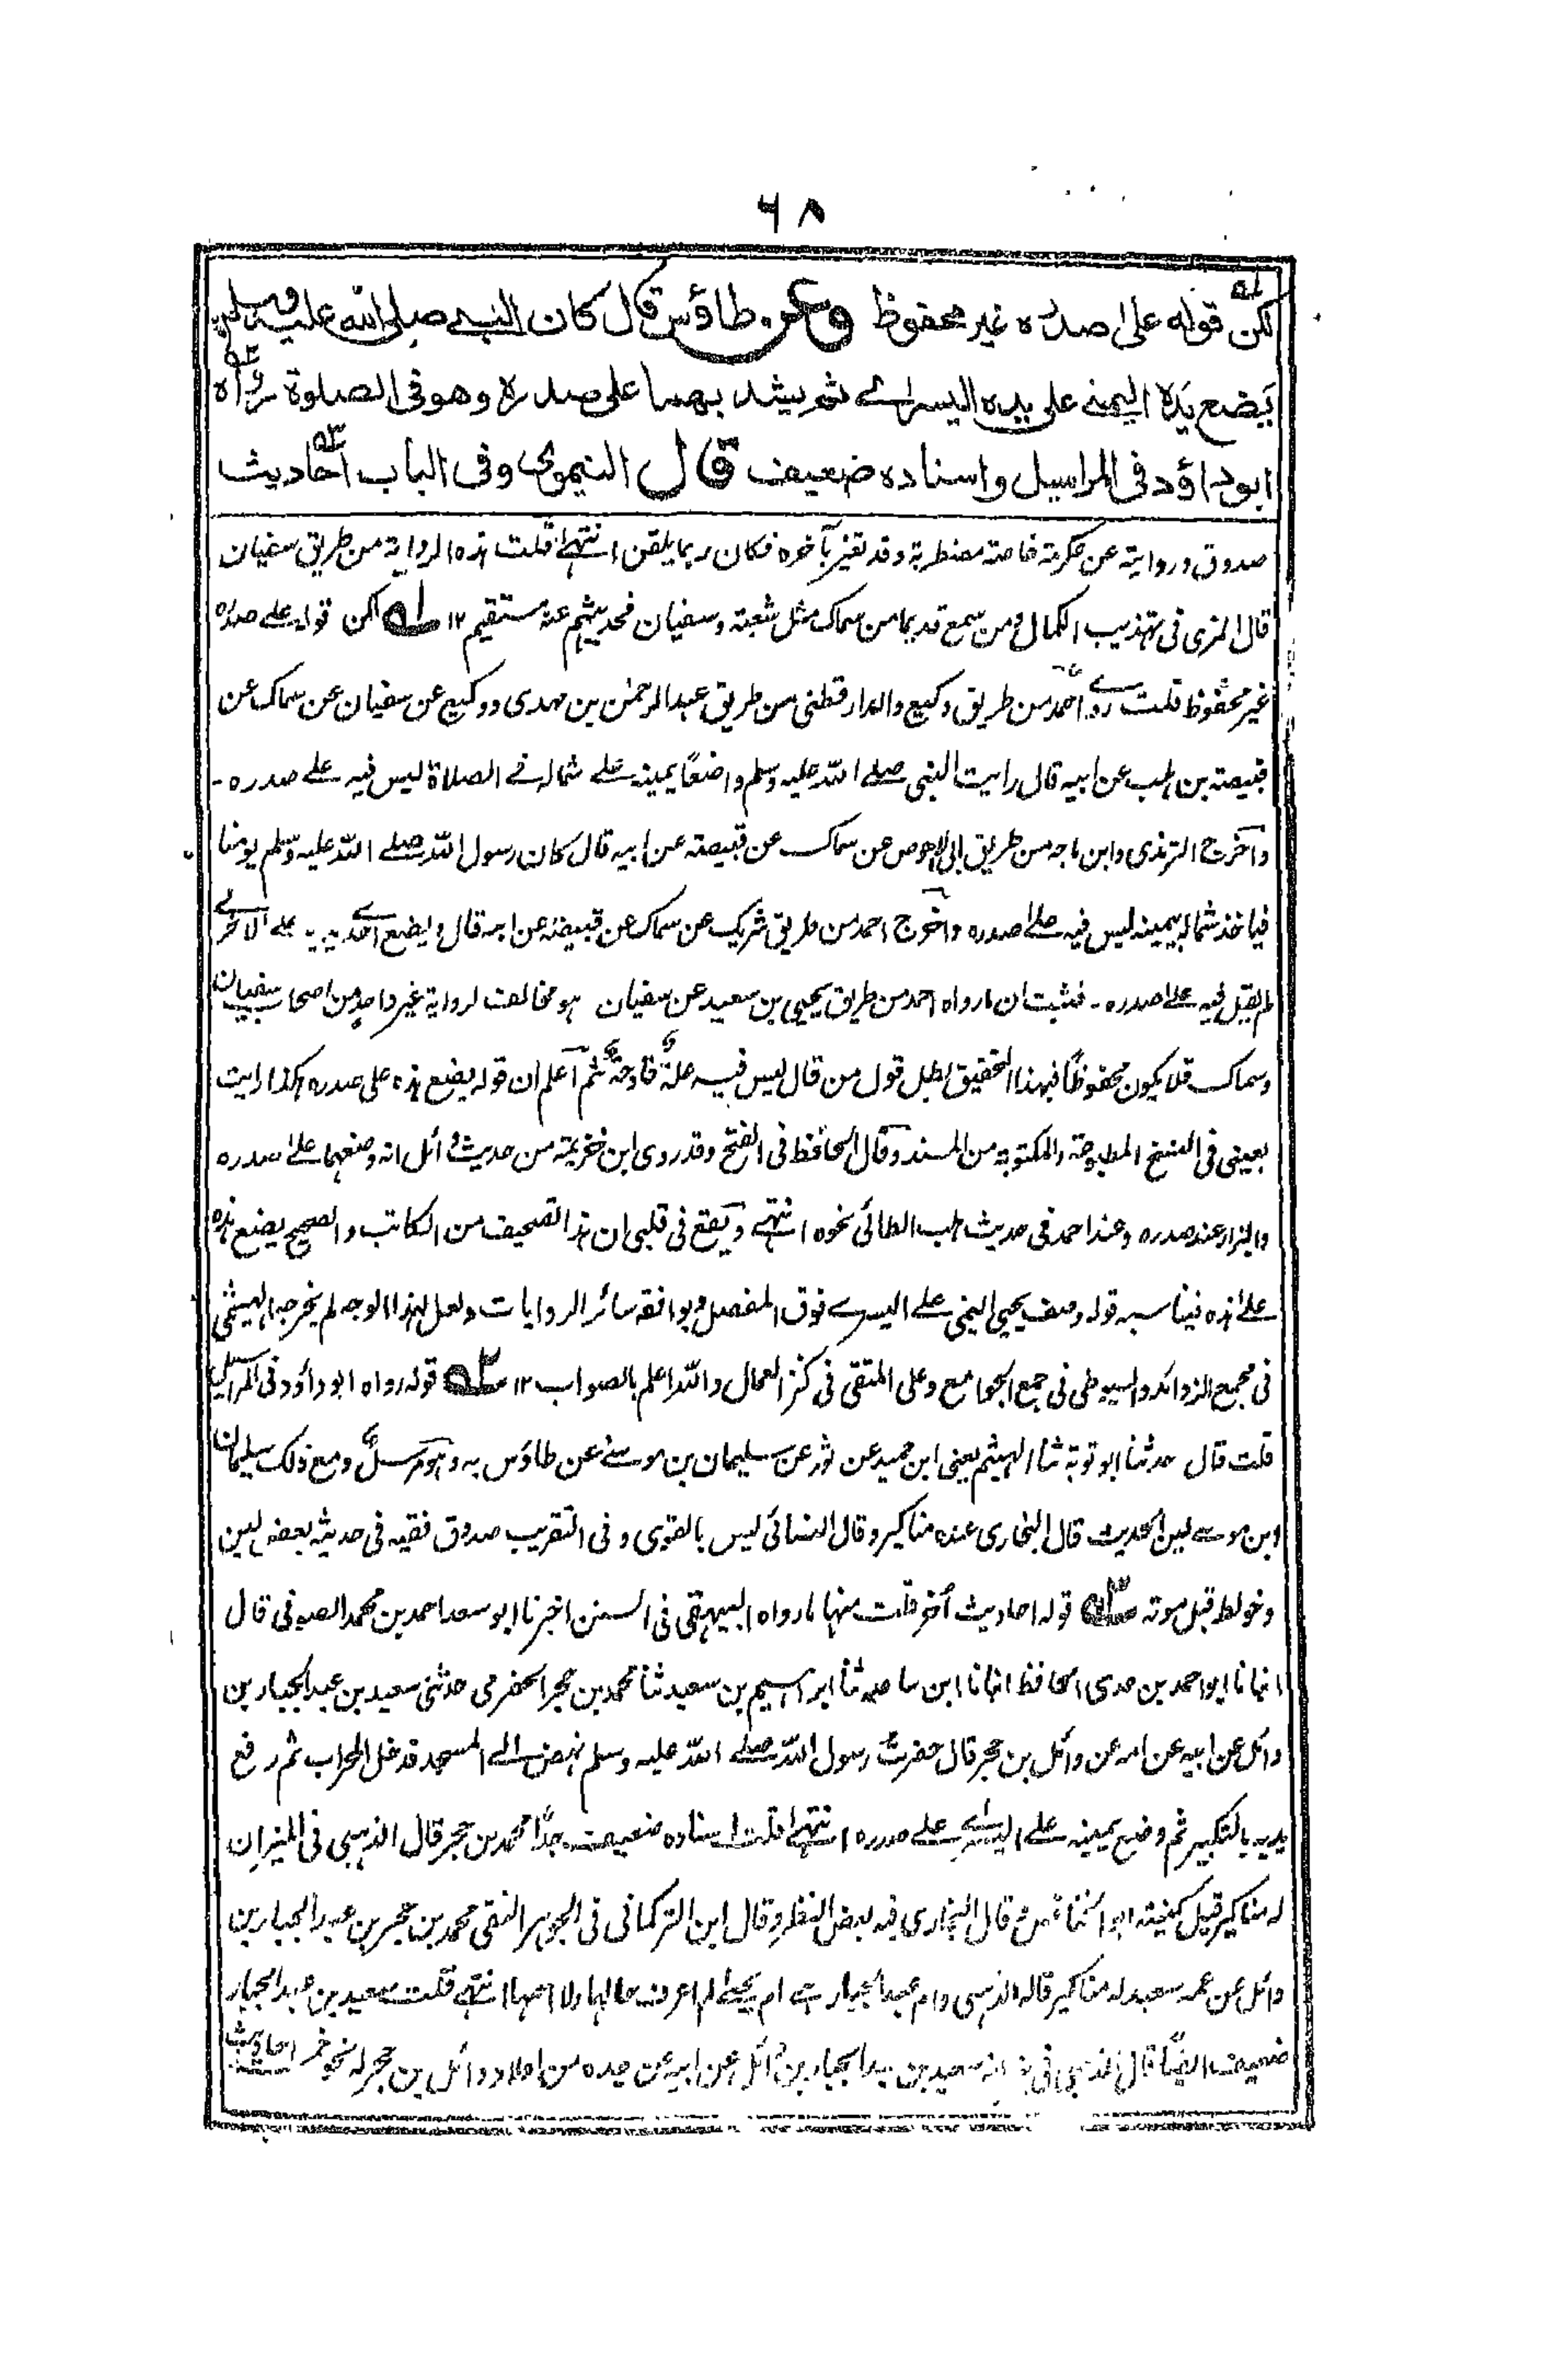 ٦٨
لكن قوله على صدره غير محفوظ وعن طاؤس قال كان النبي صلى الله عليه وسلم
يضع يده اليمنى على يده اليسرى ثم يشد بهما على صدره وهو فى الصلوة رواه
ابوداؤد فى المراسيل واسناده ضعيف قال النيموى وفى الباب احاديث
صدوق وروايته عن عكرمة خاصة مضطربة وقد تغير بآخره فكان ربما يلقن انتهى قلت هذه الرواية من طريق سفيان
قال المزى فى تهذيب الكمال ومن سمع قديما من سماك مثل شعبة وسفيان فحديثهم عنه مستقيم ١٢ ١ه لكن قوله على صدره
غير محفوظ قلت روى احمد من طريق وكيع والدارقطنى من طريق عبد الرحمن بن مهدى ووكيع عن سفيان عن سماك عن
قبيصة بن هلب عن ابيه قال رايت النبى صلى الله عليه وسلم واضعًا يمينه على شماله فى الصلاة ليس فيه على صدره -
واخرج الترمذى وابن ماجه من طريق ابى الاحوص عن سماك عن قبيصة عن ابيه قال كان رسول الله صلى الله عليه وسلم يومنا
فياخذ شماله بيمينه ليس فيه على صدره واخرج احمد من طريق شريك عن سماك عن قبيصة عن ابيه قال ويضع احدى يديه على الاخرى
لم يقل فيه على صدره - فثبت ان ما رواه احمد من طريق يحيى بن سعيد عن سفيان هو مخالف لرواية غير واحد من اصحاب سفيان
وسماك فلا يكون محفوظًا فبهذا التحقيق بطل قول من قال ليس فيه علة قادحة ثم اعلم ان قوله يضع هذه على صدره هكذا رايت
بعينى فى النسخ المطبوعة والمكتوبة من المسند وقال الحافظ فى الفتح وقد روى ابن خزيمة من حديث وائل انه وضعهما على صدره
والبزار عند صدره وعند احمد فى حديث هلب الطائى نحوه انتهى ويقع فى قلبى ان هذا تصحيف من الكاتب والصحيح يضع هذه
على هذه فيناسبه قوله وصف يحيى اليمنى على اليسرى فوق المفصل ويوافقه سائر الروايات ولعل لهذا الوجه لم يخرجه الهيثمى
فى مجمع الزوائد والسيوطى فى جمع الجوامع وعلى المتقى فى كنز العمال والله اعلم بالصواب ١٢ ٢ه قوله رواه ابو داؤد فى المراسيل
قلت قال حدثنا ابو توبة ثنا الهيثم يعنى ابن حميد عن ثور عن سليمان بن موسى عن طاؤس به وهو مرسل ومع ذلك سليمان
ابن موسى لين الحديث قال البخارى عنده مناكير وقال النسائى ليس بالقوى وفى التقريب صدوق فقيه فى حديثه بعض لين
وخولط قبل موته ٣ه قوله احاديث أخر قلت منها ما رواه البيهقى فى السنن اخبرنا ابو سعد احمد بن محمد الصوفى قال
انبانا ابو احمد بن عدى الحافظ انبانا ابن صاعد ثنا ابراهيم بن سعيد ثنا محمد بن حجر الحضرمى حدثنى سعيد بن عبد الجبار بن
وائل عن ابيه عن امه عن وائل بن حجر قال حضرت رسول الله صلى الله عليه وسلم نهض الى المسجد فدخل المحراب ثم رفع
يديه بالتكبير ثم وضع يمينه على اليسرى على صدره انتهى قلت اسناده ضعيف جدًّا محمد بن حجر قال الذهبى فى الميزان
له مناكير قيل كنيته ابو الخنافس قال البخارى فيه بعض النظر وقال ابن التركمانى فى الجوهر النقى محمد بن حجر بن عبد الجبار بن
وائل عن عمه سعيد له مناكير قاله الذهبى وام عبد الجبار هى ام يحيى لم اعرف حالها ولا اسمها انتهى قلت سعيد بن عبد الجبار
ضعيف ايضًا قال الذهبى فى سعيد بن عبد الجبار بن وائل عن ابيه عن جده من اولاد وائل بن حجر له نحو خمسة احاديث